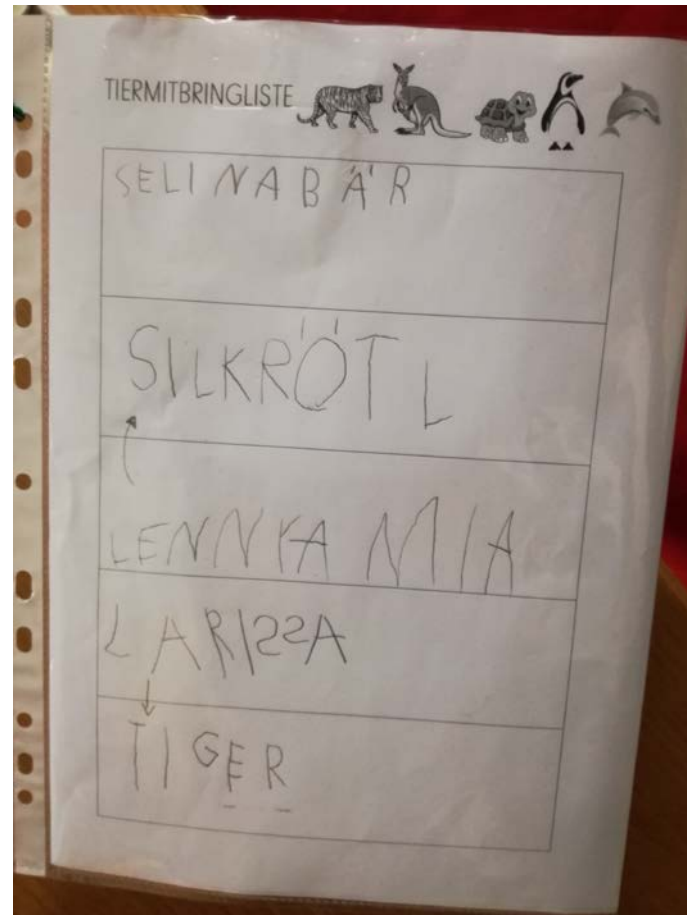 TIERMITBRINGLISTE
SELINA BÄR
SILKRÖTL
LENNYA MIA
LARISSA
TIGER